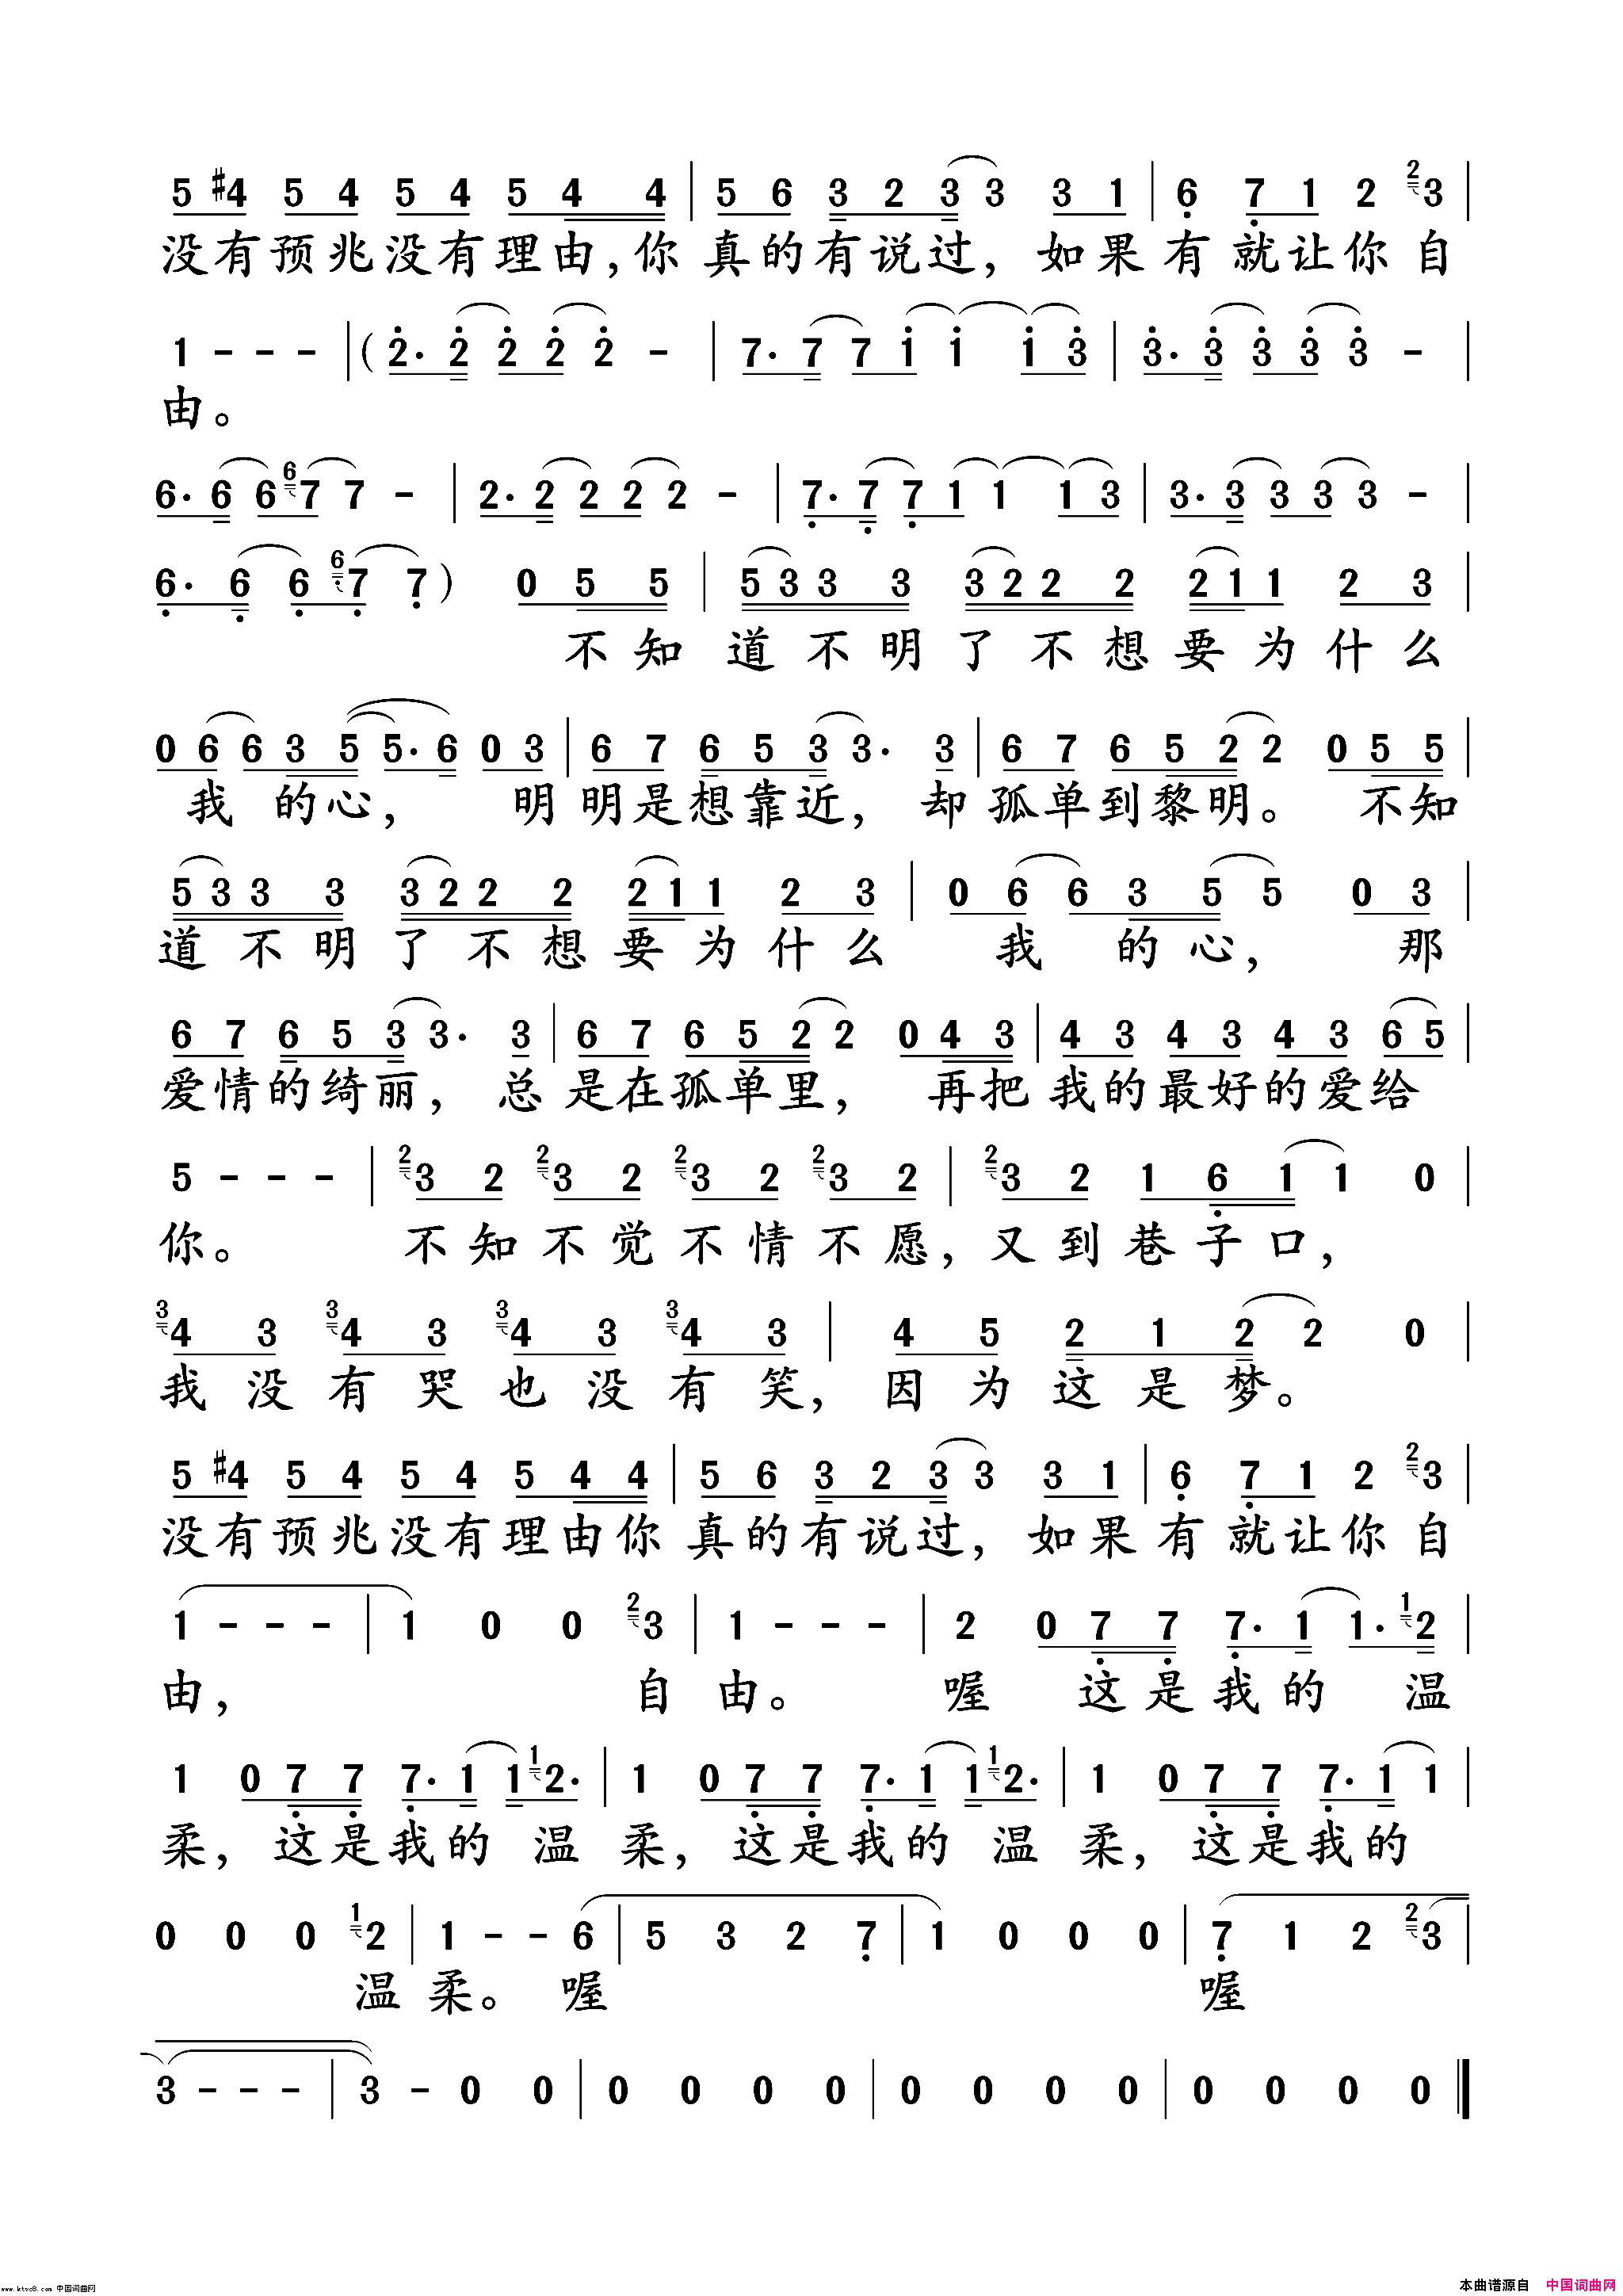 5 #4 5 4 5 4 5 4 4 | 5 6 3 2 3 3 3 1 | 6 7 1 2 2 3 |
没有预兆没有理由,你真的有说过,如果有就让你自
1 - - - | ( 2. 2 2 2 2 - | 7. 7 7 1 1 1 3 | 3. 3 3 3 3 - |
由。
6. 6 6 6 7 7 - | 2. 2 2 2 2 - | 7. 7 7 1 1 1 3 | 3. 3 3 3 3 - |
6. 6 6 6 7 7 ) 0 5 5 | 5 3 3 3 3 2 2 2 2 1 1 2 3 |
不知道不明了不想要为什么
0 6 6 3 5 5. 6 0 3 | 6 7 6 5 3 3. 3 | 6 7 6 5 2 2 0 5 5 |
我的心,明明是想靠近,却孤单到黎明。不知
5 3 3 3 3 2 2 2 2 1 1 2 3 | 0 6 6 3 5 5 0 3 |
道不明了不想要为什么我的心,那
6 7 6 5 3 3. 3 | 6 7 6 5 2 2 0 4 3 | 4 3 4 3 4 3 6 5 |
爱情的绮丽,总是在孤单里,再把我的最好的爱给
5 - - - | 2 3 2 2 3 2 2 3 2 2 3 2 | 2 3 2 1 6 1 1 0 |
你。不知不觉不情不愿,又到巷子口,
3 4 3 3 4 3 3 4 3 3 4 3 | 4 5 2 1 2 2 0 |
我没有哭也没有笑,因为这是梦。
5 #4 5 4 5 4 5 4 4 | 5 6 3 2 3 3 3 1 | 6 7 1 2 2 3 |
没有预兆没有理由你真的有说过,如果有就让你自
1 - - - | 1 0 0 2 3 | 1 - - - | 2 0 7 7 7. 1 1. 1 2 |
由,自由。喔这是我的温
1 0 7 7 7. 1 1 1 2. | 1 0 7 7 7. 1 1 1 2. | 1 0 7 7 7. 1 1 |
柔,这是我的温柔,这是我的温柔,这是我的
0 0 0 1 2 | 1 - - 6 | 5 3 2 7 | 1 0 0 0 | 7 1 2 2 3 |
温柔。喔喔
3 - - - | 3 - 0 0 | 0 0 0 0 | 0 0 0 0 | 0 0 0 0 ‖
www.ktvc8.com 中国词曲网
本曲谱源自 中国词曲网